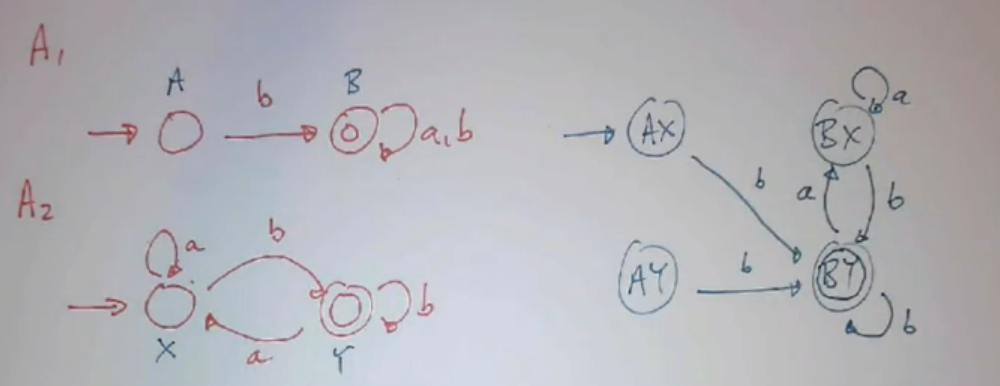 A1
A
b
B
a,b
A2
a
b
b
X
a
Y
AX
BX
a
b
a
b
AY
b
BY
b